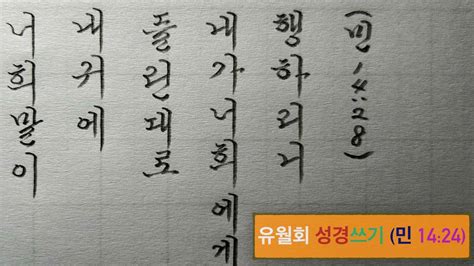 너희말이
내귀에
들린대로
내가너희에게
행하리니
(민14:28)
유월회 성경쓰기 (민 14:24)